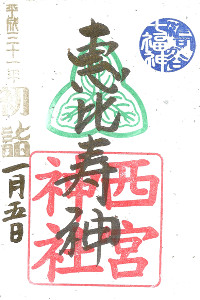 七福神
恵比寿神
西宮
神社
平成二十一年
初詣
一月五日